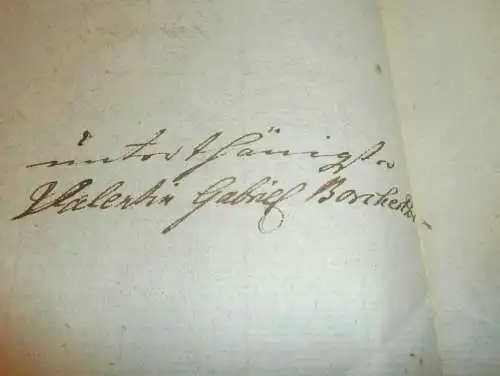 unterthänigster
Valentin Gabriel Borchert